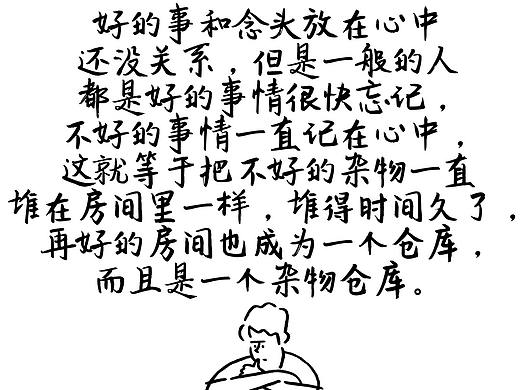 好的事和念头放在心中
还没关系，但是一般的人
都是好的事情很快忘记，
不好的事情一直记在心中，
这就等于把不好的杂物一直
堆在房间里一样，堆得时间久了，
再好的房间也成为一个仓库，
而且是一个杂物仓库。